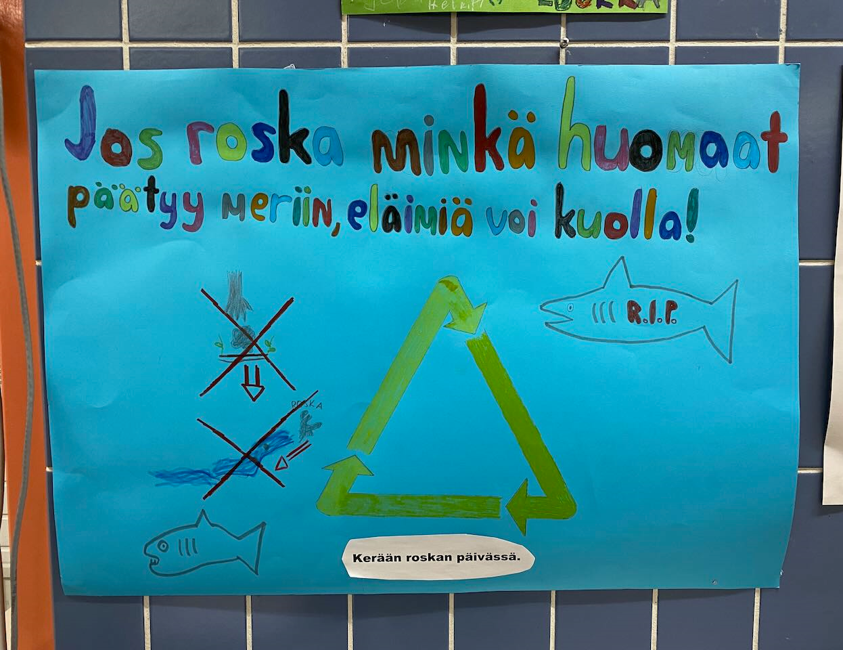 Jos roska minkä huomaat
päätyy meriin, eläimiä voi kuolla!
R.I.P.
ROSKA
Kerään roskan päivässä.